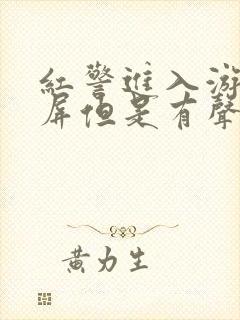 紅警進入游
屏但是有聲
黃力生